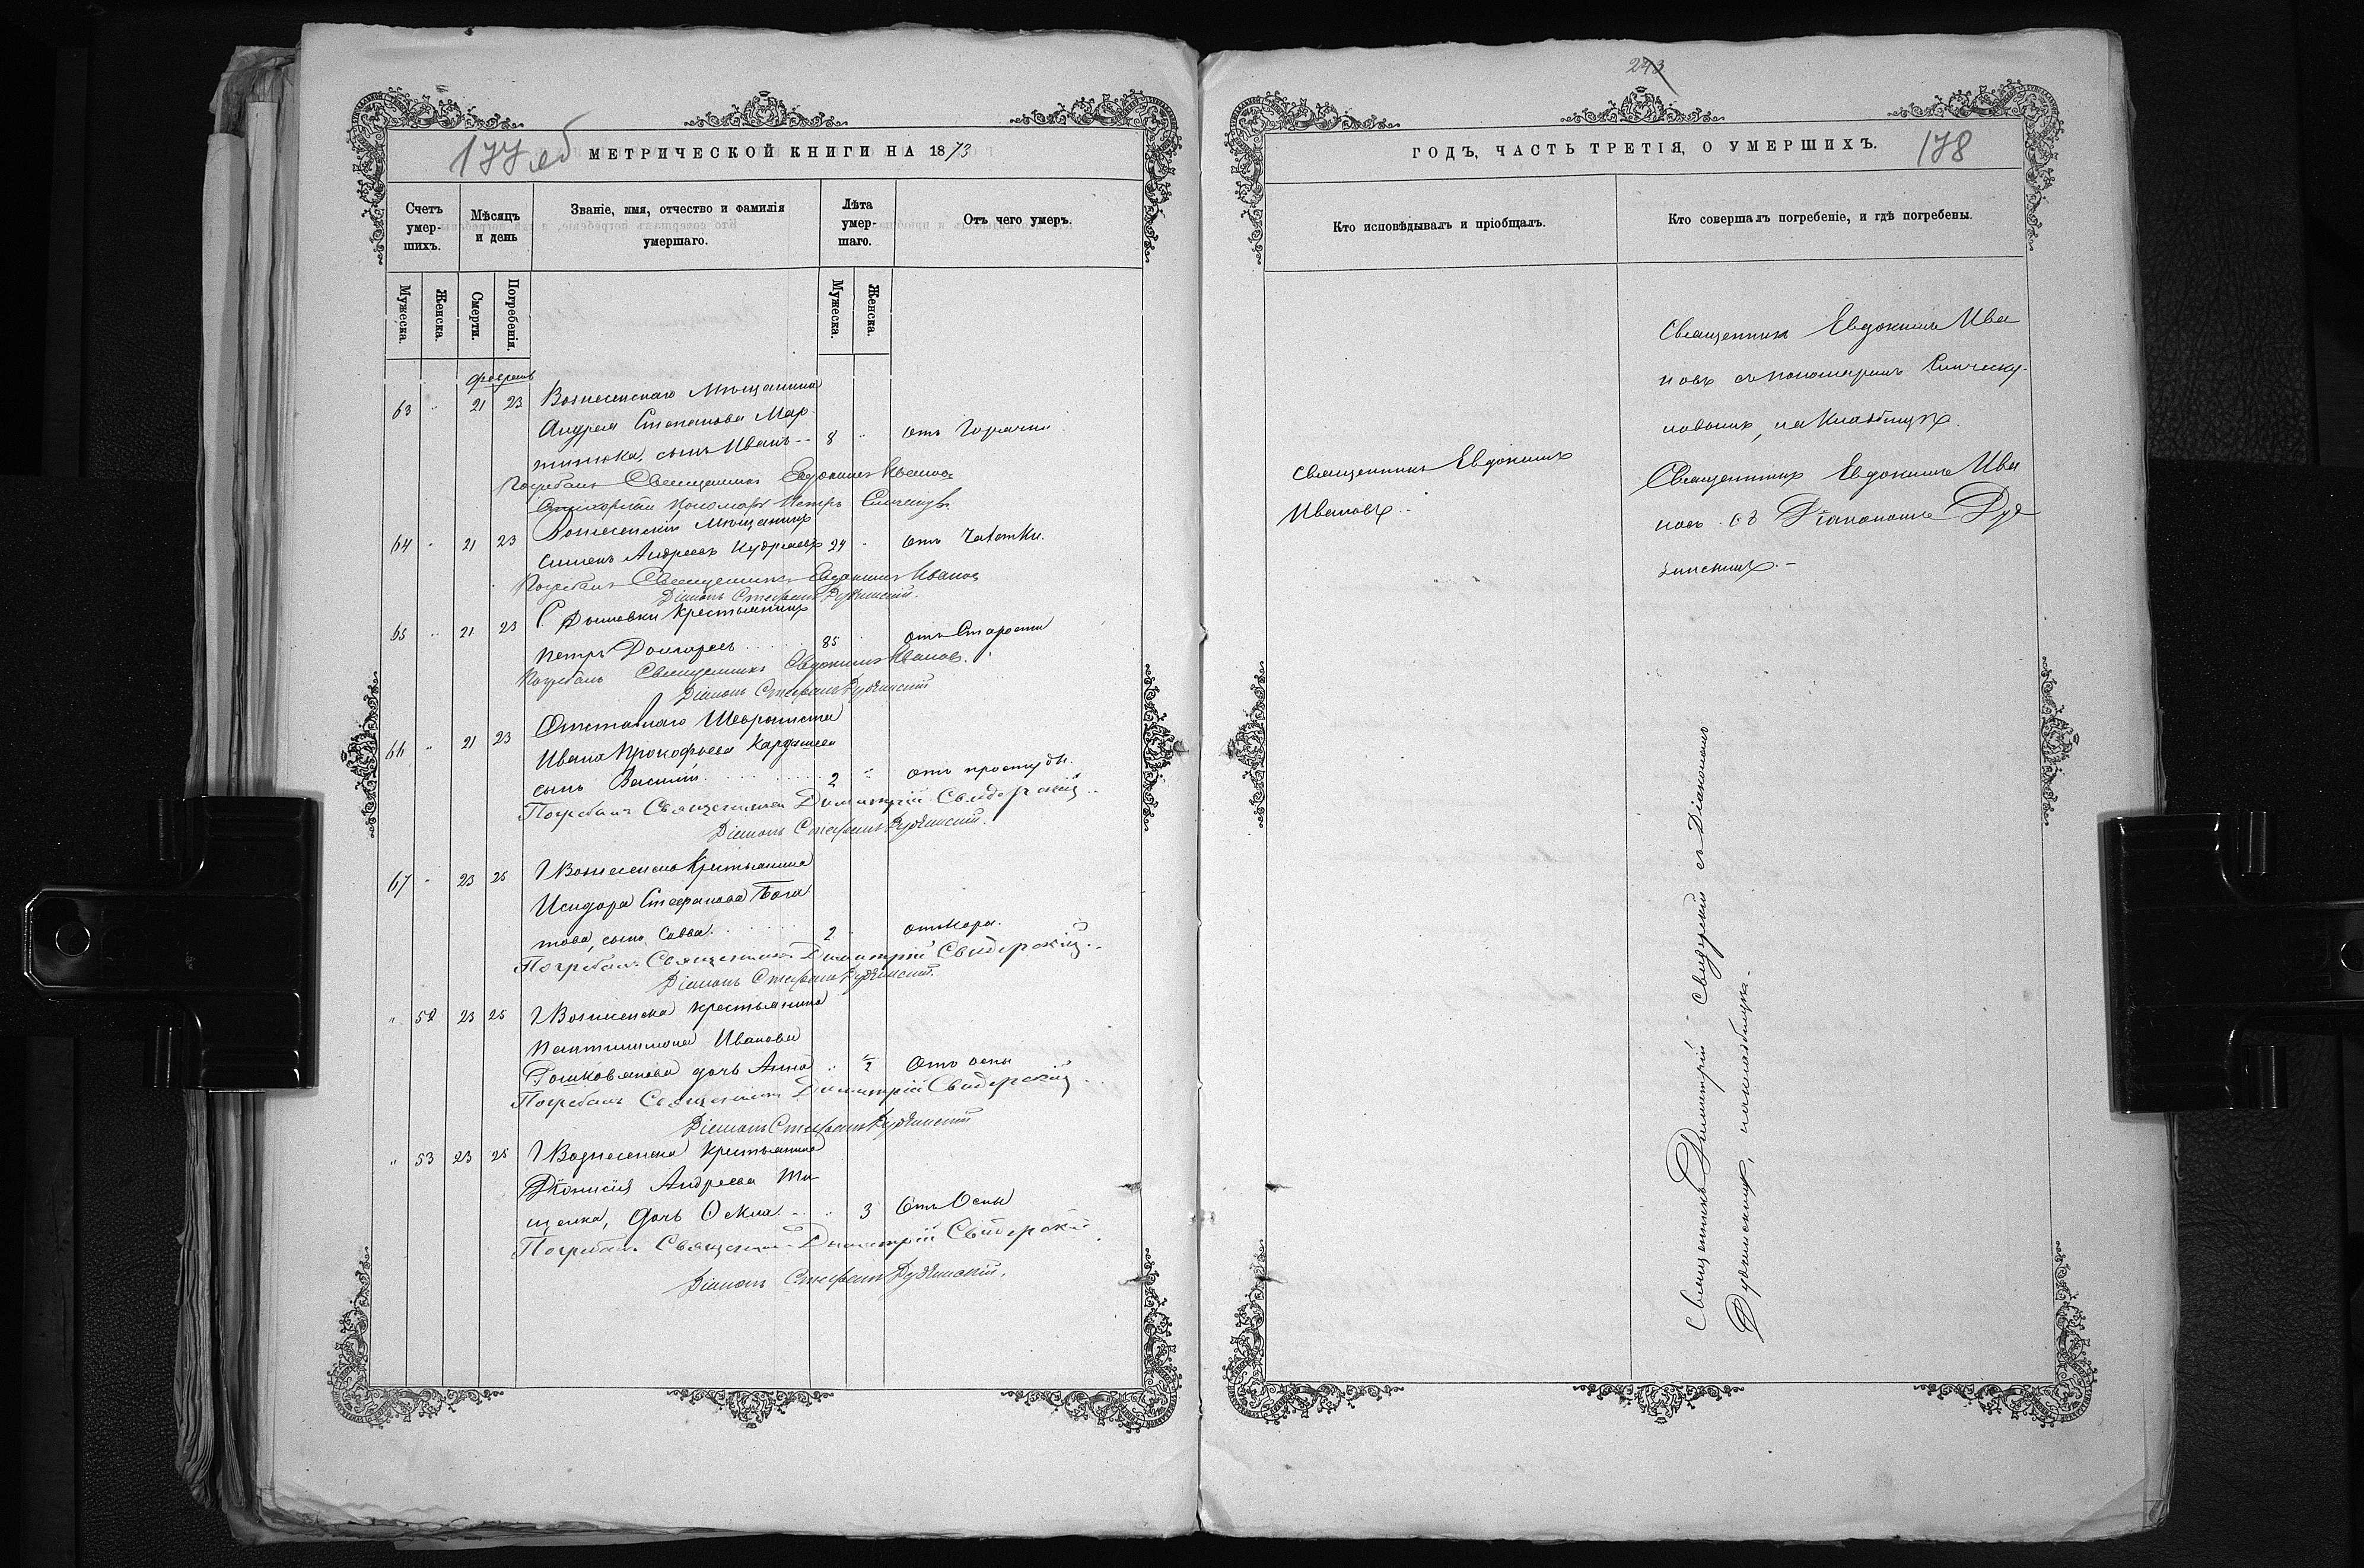 177 об
МЕТРИЧЕСКОЙ КНИГИ НА 1873
Счетъ умер-шихъ.
Мѣсяцъ и день
Званіе, имя, отчество и фамилія умершаго.
Лѣта умер-шаго.
Отъ чего умеръ.
Мужеска.
Женска.
Смерти.
Погребенія.
Мужеска.
Женска.
февраль
63 " 21 23 Вознесенскаго Мѣщанина
Андрея Степанова Мар
тинюка, сынъ Иванъ 8 " отъ Горячки
Погребалъ Священникъ Евдокимъ Ивановъ
пономарь Петръ
64 " 21 23 Вознесенскій Мѣщанинъ
Симонъ Андреевъ Кудрявевъ 24 " отъ Чахотки.
Погребалъ Священникъ Евдокимъ Ивановъ
Діаконъ Стефанъ Рудзинскій.
65 " 21 23 С. крестьянинъ
Петръ 85 " отъ Старости
Погребалъ Священникъ Евдокимъ Ивановъ.
Діаконъ Стефанъ Рудзинскій
66 " 21 23 Отставнаго
Ивана Прокофьева Кардашева
сынъ Василій 2 " отъ простуды.
Погребалъ Священникъ Димитрій Свидерскій
Діаконъ Стефанъ Рудзинскій.
67 " 23 25 Г Вознесенска Крестьянина
Исидора Стефанова Бога
това, сынъ Савва 2 " отъ Кора.
Погребалъ Священникъ Димитрій Свидерскій
Діаконъ Стефанъ Рудзинскій.
" 52 23 25 Г Вознесенска крестьянина
Пантилимона Иванова
дочь Анна " 2 Отъ оспы
Погребалъ Священникъ Димитрій Свидерскій
Діаконъ Стефанъ Рудзинскій
" 53 23 25 Г Вознесенска крестьянина
Діонисія Андреева Ти
щенка, дочь " 3 Отъ Оспы
Погребалъ Священникъ Димитрій Свидерскій
Діаконъ Стефанъ Рудзинскій.
243
ГОДЪ, ЧАСТЬ ТРЕТІЯ, О УМЕРШИХЪ.
178
Кто исповѣдывалъ и пріобщалъ.
Кто совершалъ погребеніе, и гдѣ погребены.
Священникъ Евдокимъ Ива
новъ съ пономаремъ
на Кладбищѣ.
Священникъ Евдокимъ
Ивановъ.
Священникъ Евдокимъ Ива
новъ съ Діакономъ Руд
зинскимъ.
Священникъ Димитрій Свидерскій съ Діакономъ
Рудзинскимъ, на кладбищѣ.